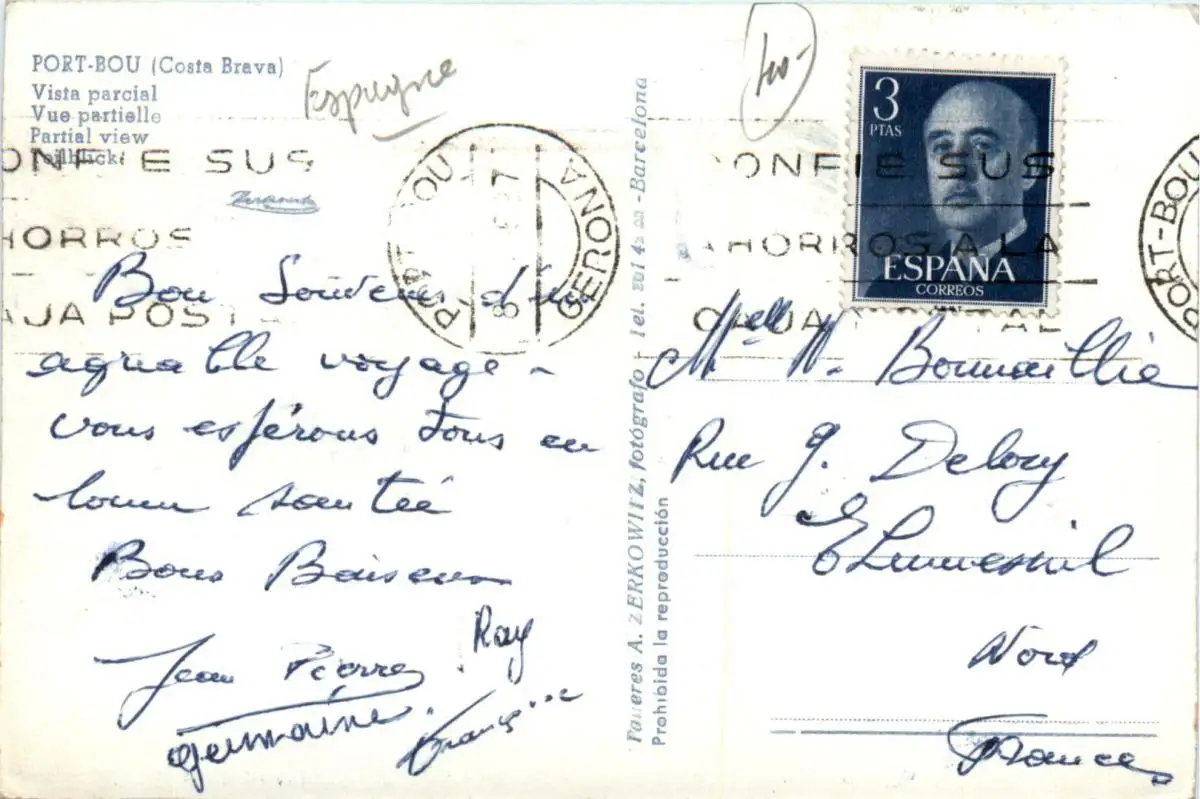 PORT-BOU (Costa Brava)
Vista parcial
Vue partielle
Partial view
Teilblick
Espagne
Zerkowitz
ONFIE SUS
HORROS
AJA POSTA
PORT-BOU
GERONA
Bon Souvenir d'un
agréable voyage -
vous espérons tous en
bonne santée
Bons Baisers
Jean Pierre
Ray
germaine.
Palleres A. ZERKOWITZ, fotógrafo - Tel. Barcelona
Prohibida la reproducción
3
PTAS
ESPAÑA
CORREOS
ONFIE SUS
AHORROS A LA
CAJA POSTAL
PORT-BOU
Melle M. Bonnaillie
Rue G. Delory
Nord
France